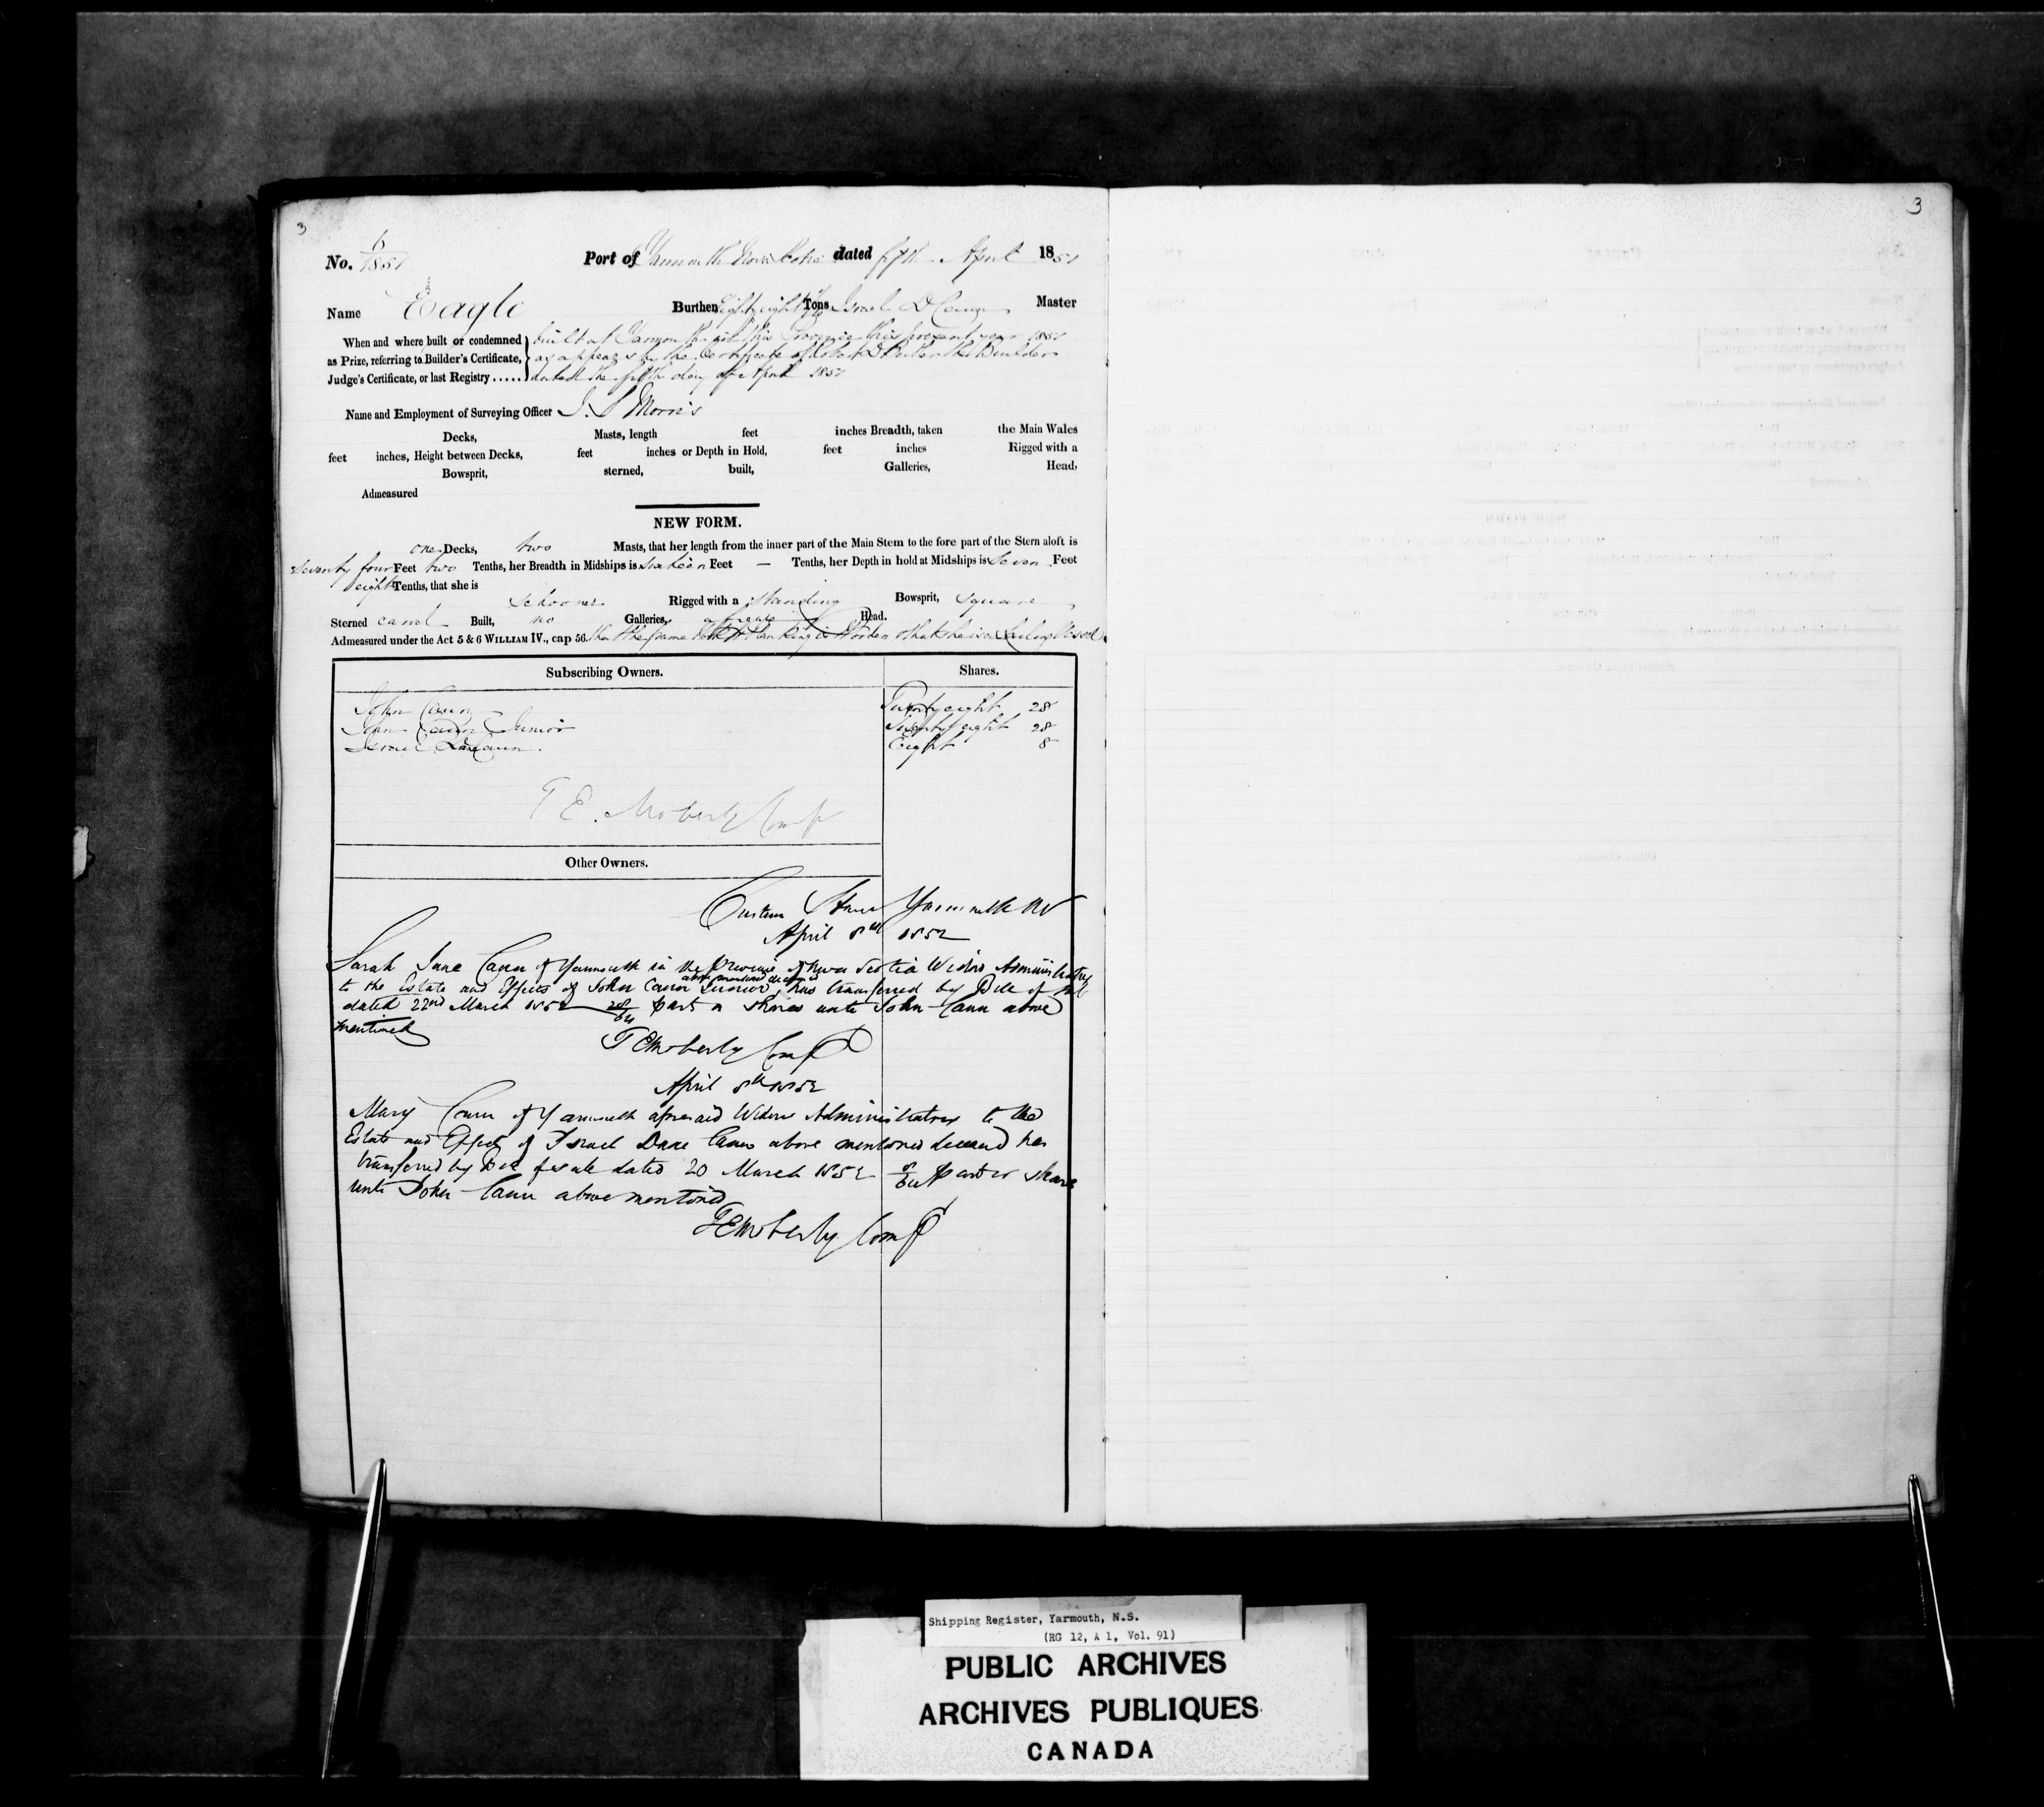 3
No. 6/1851 Port of Yarmouth Nova Scotia dated fifth April 1851
Name Eagle Burthen Eighty eight Tons Israel D Cann Master
When and where built or condemned built at Yarmouth in this Province this present year 1851
as Prize, referring to Builder's Certificate, as appears by the Certificate of Robert D Butler the Builder
Judge's Certificate, or last Registry ..... dated the fifth day of April 1851
Name and Employment of Surveying Officer J. S Morris
Decks, Masts, length feet inches Breadth, taken the Main Wales
feet inches, Height between Decks, feet inches or Depth in Hold, feet inches Rigged with a
Bowsprit, sterned, built, Galleries, Head,
Admeasured
NEW FORM.
one Decks, two Masts, that her length from the inner part of the Main Stem to the fore part of the Stern aloft is
Seventy four Feet two Tenths, her Breadth in Midships is Sixteen Feet — Tenths, her Depth in hold at Midships is Seven Feet
eight Tenths, that she is
Schooner Rigged with a standing Bowsprit, square
Sterned carvel Built, no Galleries, a Head.
Admeasured under the Act 5 & 6 WILLIAM IV., cap 56. that the frame work & Planking is Wooden & that she is a Sailing Vessel
Subscribing Owners. Shares.
John Cann Twenty eight 28
John Cann Junior Twenty eight 28
Israel Dane Cann. Eight 8
T E. Moberly Comp
Other Owners.
Custom House Yarmouth NS
April 8th 1852
Sarah Jane Cann of Yarmouth in the Province of Nova Scotia Widow Administratrix
above mentioned deceased
to the Estate and Effects of John Cann Junior, has transferred by Bill of Sale
dated 22nd March 1852 28/64 part or shares unto John Cann above
mentioned
T E Moberly Comp
April 8th 1852
Mary Cann of Yarmouth aforesaid Widow Administratrix to the
Estate and Effects of Israel Dane Cann above mentioned deceased has
transferred by Bill of sale dated 20 March 1852 8/64 part or share
unto John Cann above mentioned
T E Moberly Comp
3
Shipping Register, Yarmouth, N.S.
(RG 12, A 1, Vol. 91)
PUBLIC ARCHIVES
ARCHIVES PUBLIQUES
CANADA